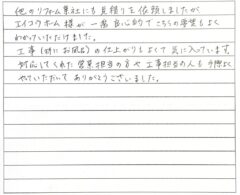 他のリフォーム業社にも見積りを依頼しましたが
エイコウホーム様が一番良心的でこちらの希望もよく
わかっていただけました。
工事(特にお風呂)の仕上がりもよくて気に入っています。
対応してくれた営業担当の方や工事担当の人も手際よく
やっていただいてありがとうございました。